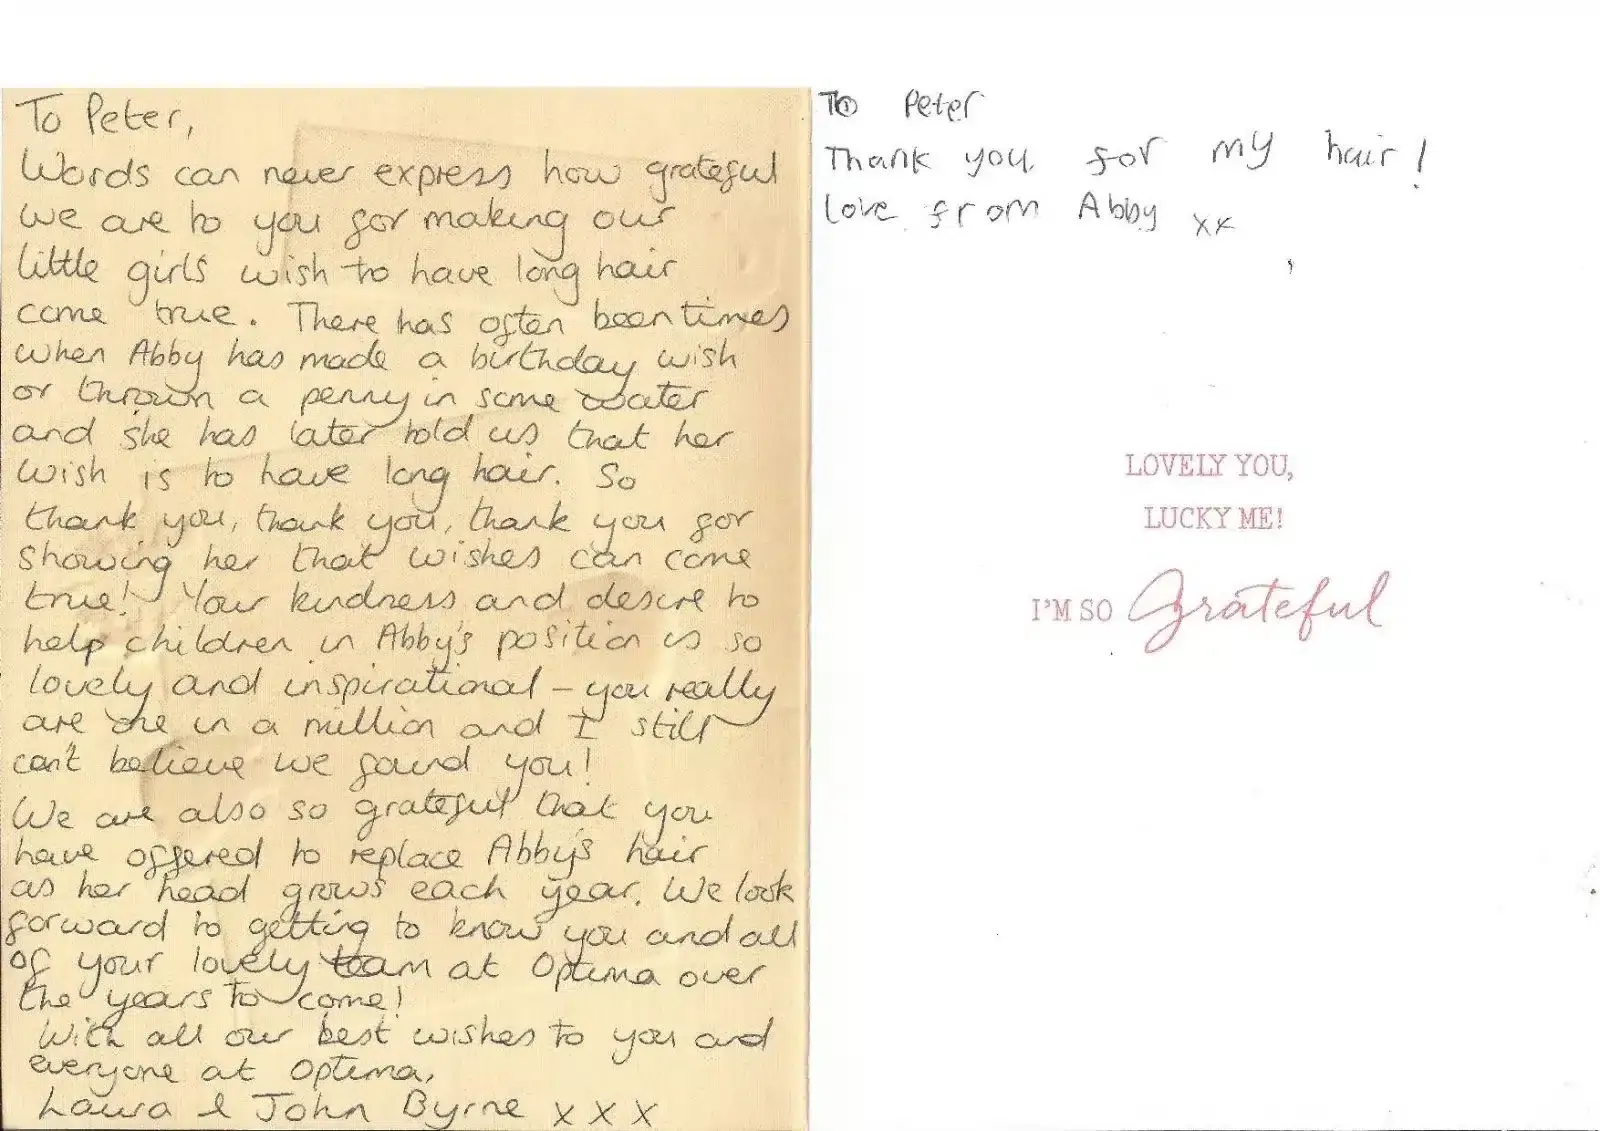 To Peter,
Words can never express how grateful
we are to you for making our
little girls' wish to have long hair
come true. There has often been times
when Abby has made a birthday wish
or thrown a penny in some water
and she has later told us that her
wish is to have long hair. So
thank you, thank you, thank you for
showing her that wishes can come
true! Your kindness and desire to
help children in Abby's position is so
lovely and inspirational – you really
are one in a million and I still
can't believe we found you!
We are also so grateful that you
have offered to replace Abby's hair
as her head grows each year. We look
forward to getting to know you and all
of your lovely team at Optima over
the years to come!
With all our best wishes to you and
everyone at Optima,
Laura & John Byrne x x x
To Peter
Thank you for my hair!
love from Abby xx
LOVELY YOU,
LUCKY ME!
I'M SO Grateful